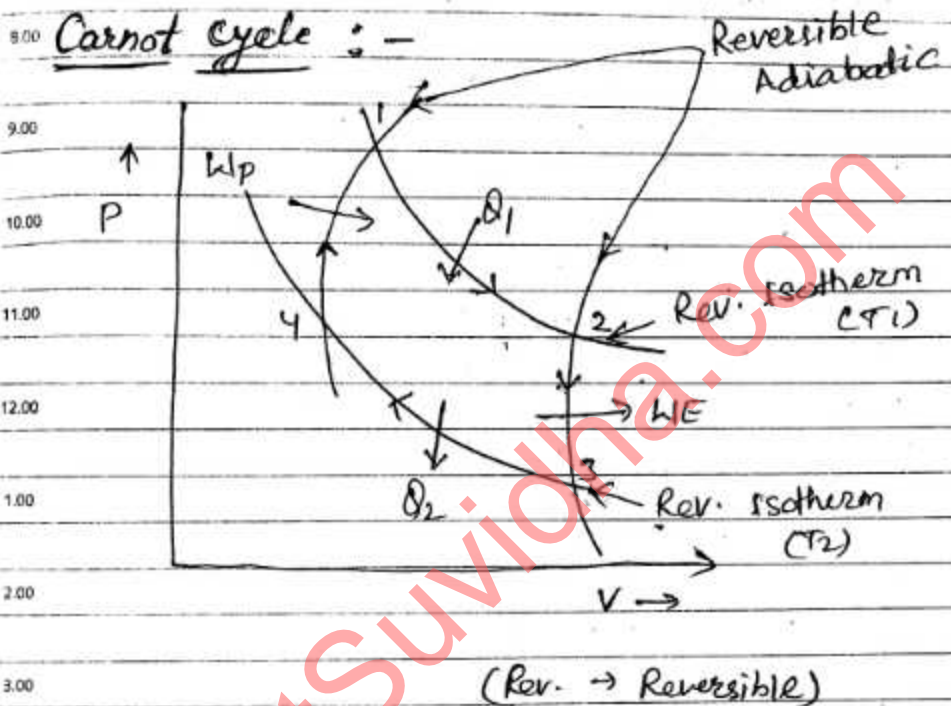 8.00 Carnot cycle :-
Reversible
Adiabatic
9.00
1
Wp
P
10.00
Q1
11.00
4
2
Rev. Isotherm
(T1)
12.00
WE
3
1.00
Q2
Rev. Isotherm
(T2)
2.00
V →
3.00
(Rev. → Reversible)
tSuvidha.com